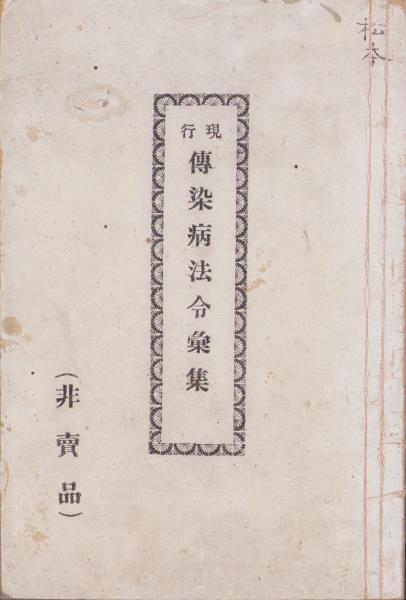 松本
現行
傳染病法令彙集
(非賣品)